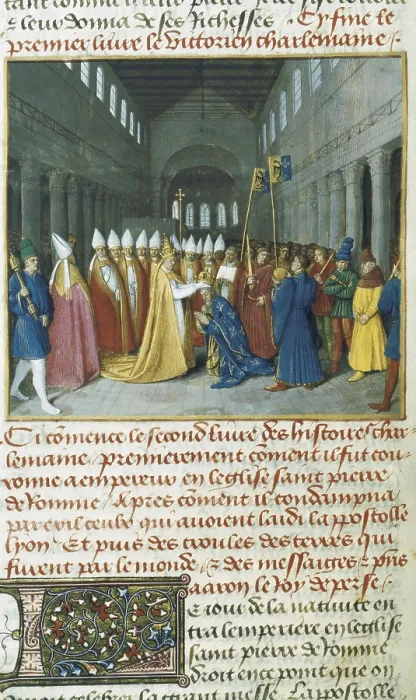 & leur donna de ses richesses . Cy fine le
premier livre le victorien charlemaine /.
Ci cōmence le second livre des histoires char
lemaine / premierement cōment il fut cou
ronne a empereur en leglise saint pierre
de Romme / Apres cōment il condampna
par exil ceulx qui avoient laidi lappostolle
Lyon / Et puis des croules des terres qui
furent par le monde / & des messaiges
aaron le Roy de perse /.
E jour de la nativite en
tra lemperiere en leglise
saint pierre de Romme
droit en ce point que on
la grant messe / Lappostolle